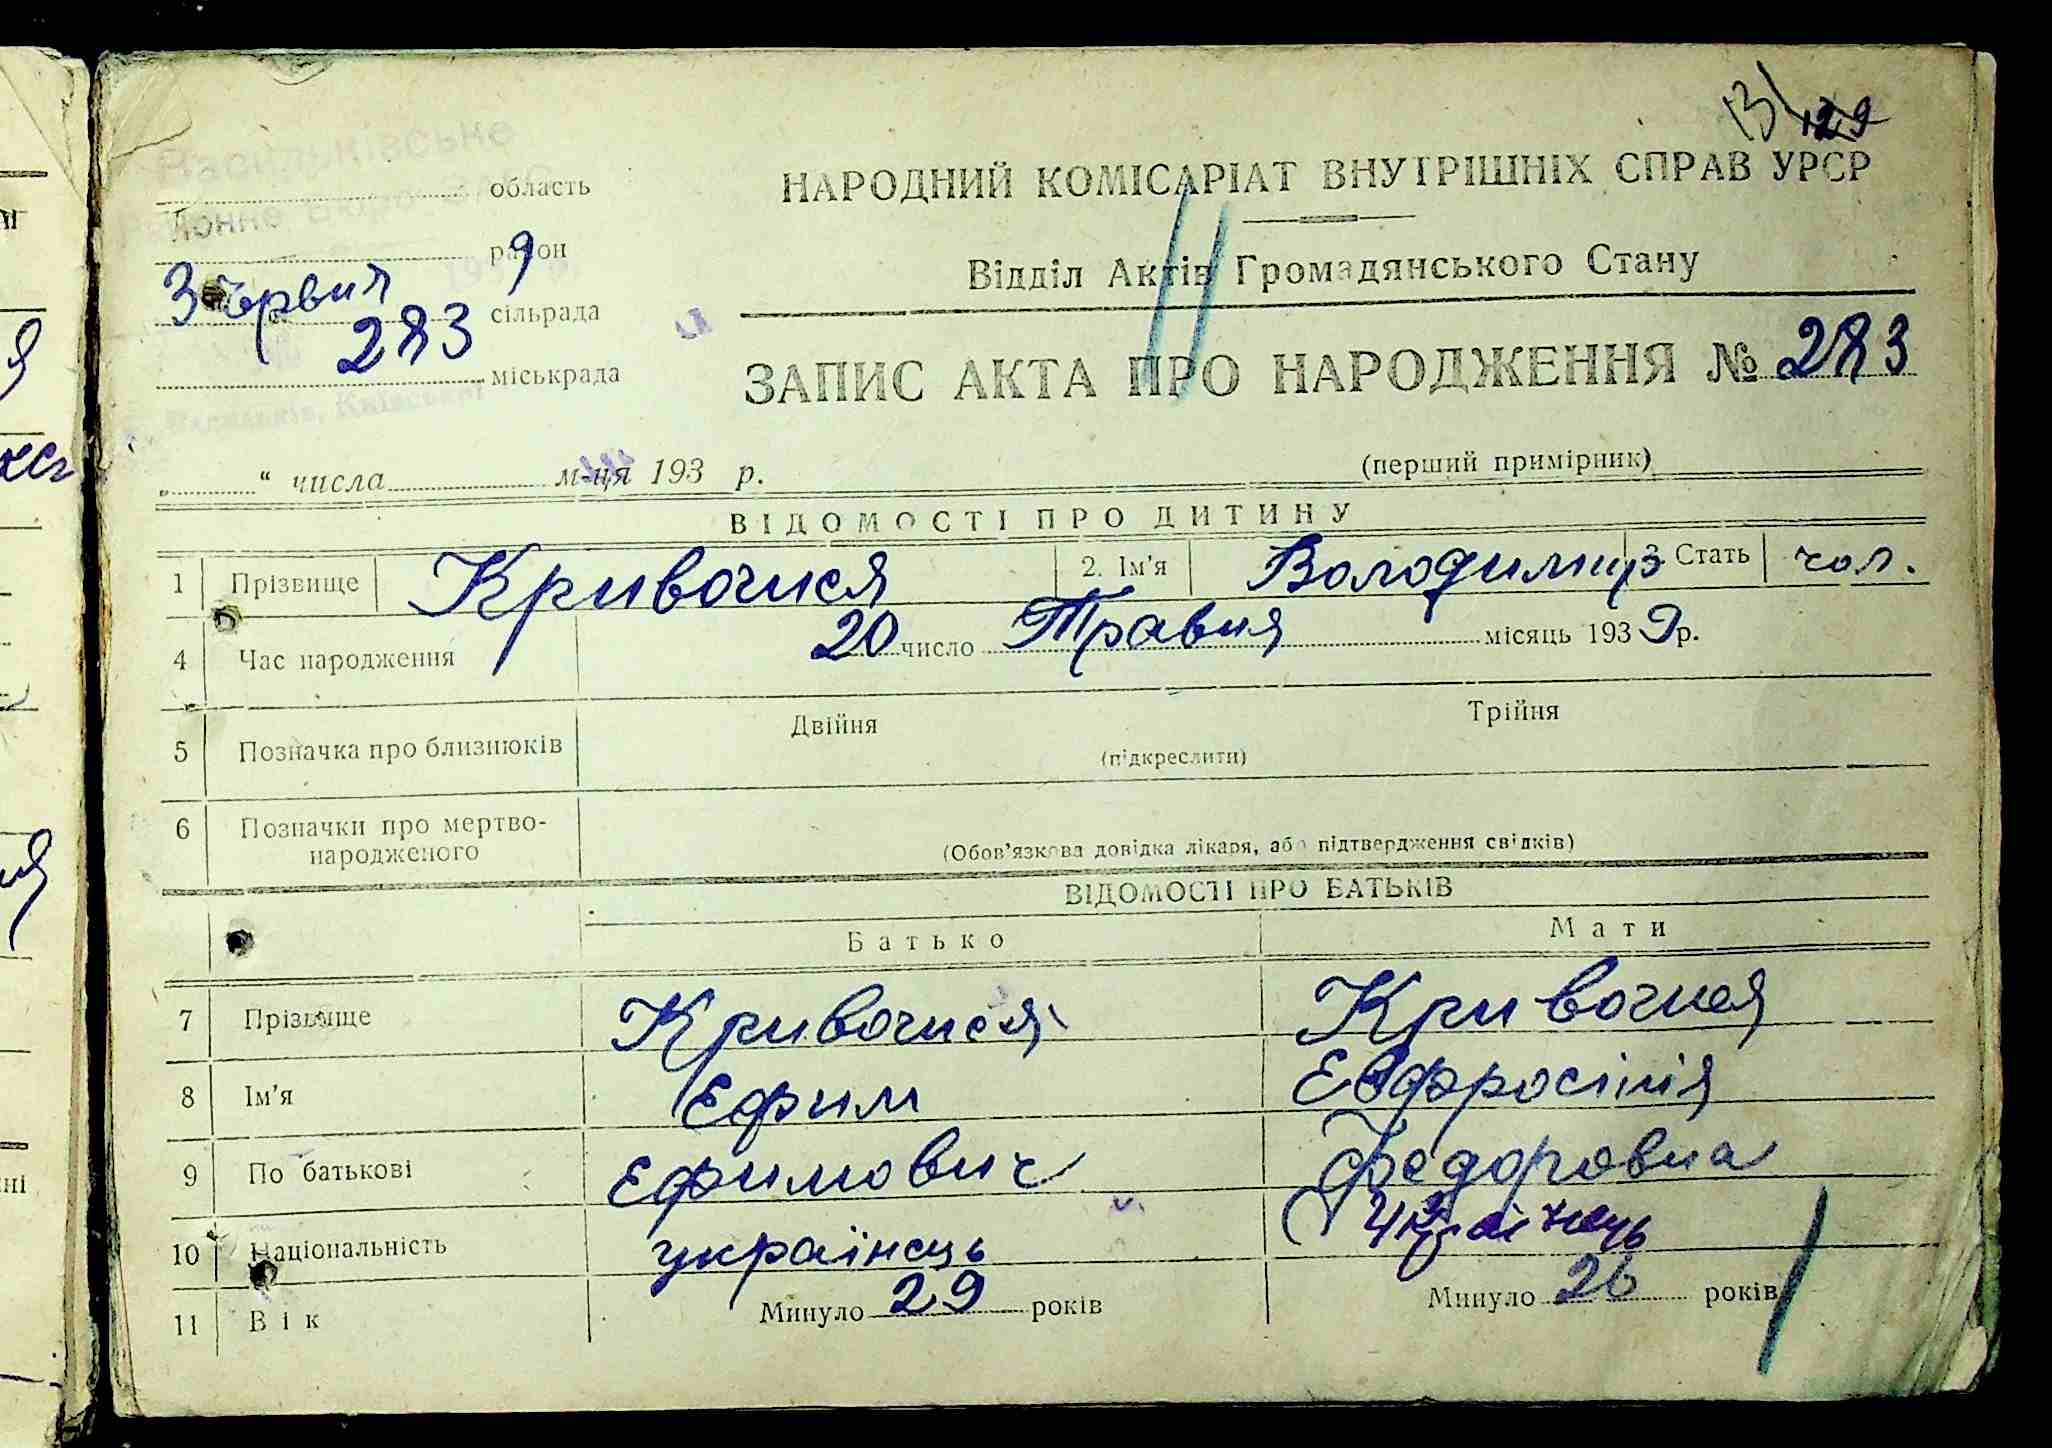 131 129
Васильківське
область
НАРОДНИЙ КОМІСАРІАТ ВНУТРІШНІХ СПРАВ УРСР
район 9
Відділ Актів Громадянського Стану
3 червня
сільрада
283
міськрада
ЗАПИС АКТА ПРО НАРОДЖЕННЯ № 283
м. Васильків, Київської
„ “ числа м-ця 193 р.
(перший примірник)
ВІДОМОСТІ ПРО ДИТИНУ
1 Прізвище Кривочися 2. Ім'я Володимир 3. Стать чол.
4 Час народження 20 число Травня місяць 1939 р.
5 Позначка про близнюків Двійня Трійня
(підкреслити)
6 Позначки про мертво-
народженого
(Обов'язкова довідка лікаря, або підтвердження свідків)
ВІДОМОСТІ ПРО БАТЬКІВ
Батько Мати
7 Прізвище Кривочися Кривочися
8 Ім'я Ефим Евфросінія
9 По батькові Ефимович Федоровна
10 Національність українець українець
11 Вік Минуло 29 років Минуло 26 років